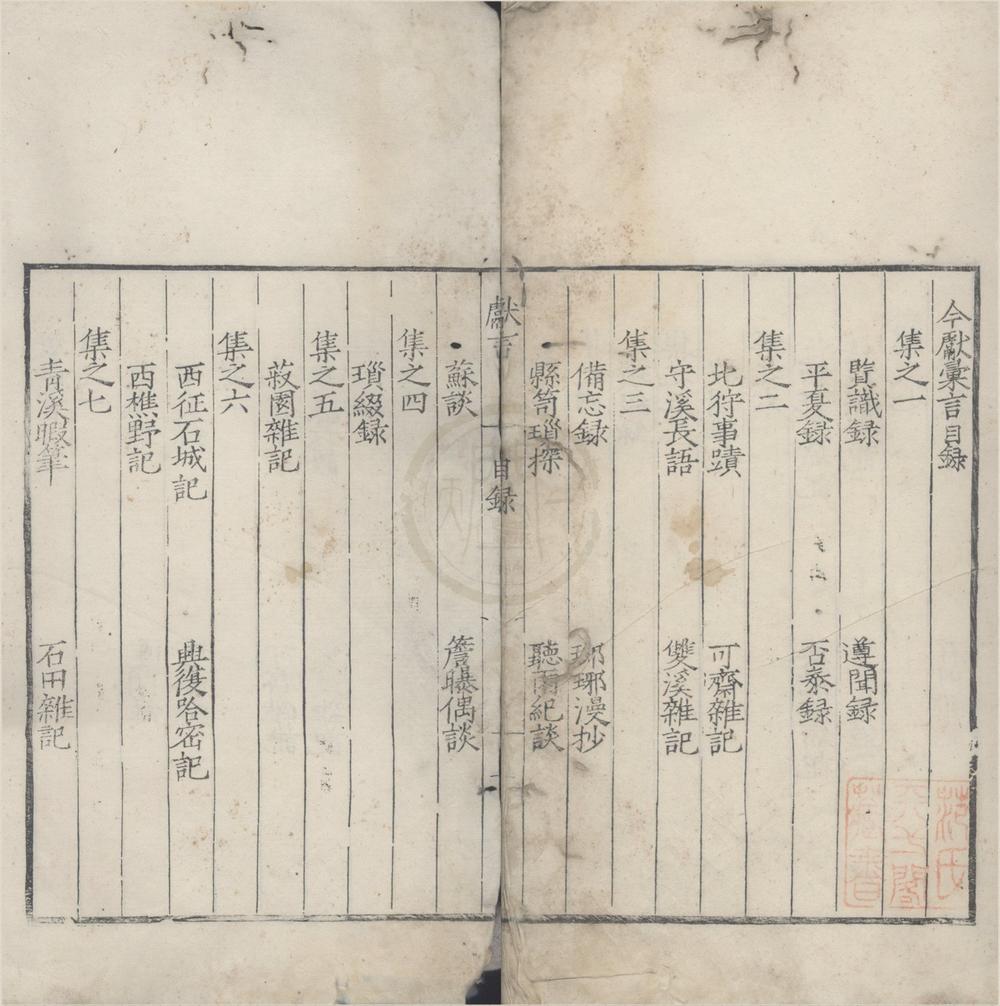 今獻彙言目録
集之一
賢識録 遵聞録
平夏録 否泰録
集之二
北狩事蹟 可齋雜記
守溪長語 雙溪雜記
集之三
備忘録 琅琊漫抄
縣笥瑣探 聽雨紀談
獻言 目録 一
蘇談 簷曝偶談
集之四
瑣綴録
集之五
菽園雜記
集之六
西征石城記 興復哈密記
西樵野記
集之七
青溪暇筆 石田雜記
范氏天一閣藏書